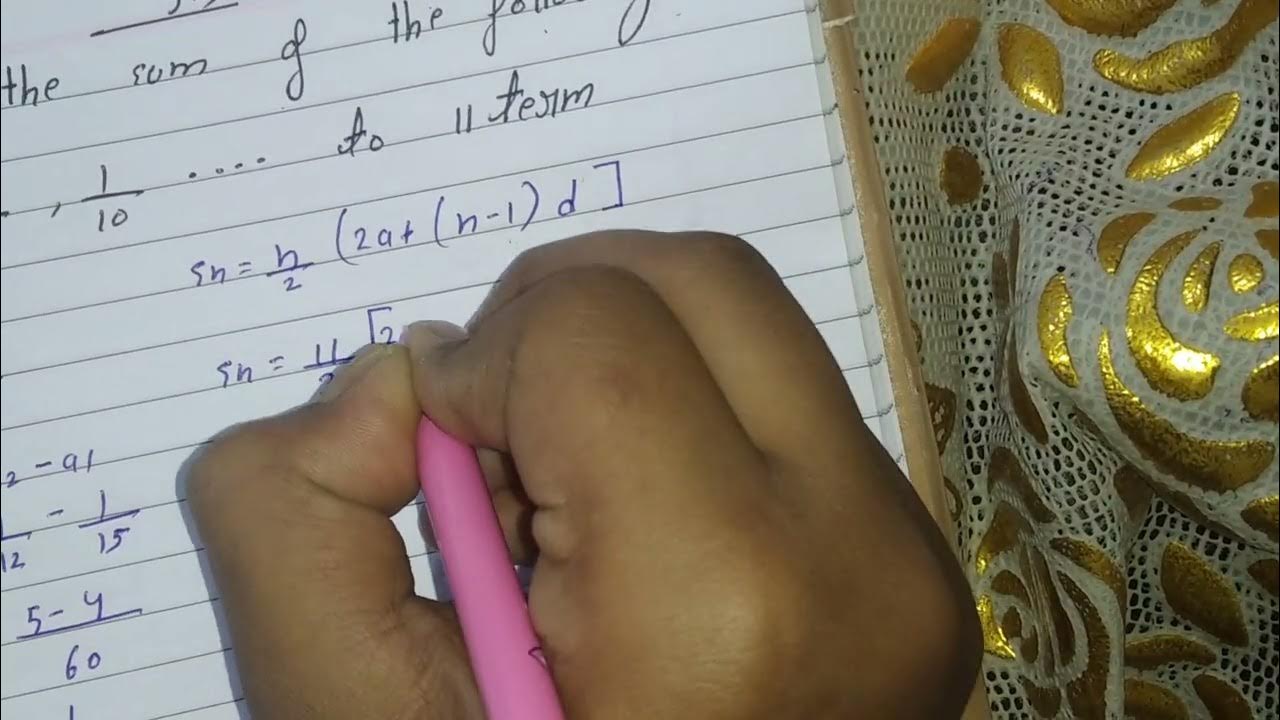 the sum of the
, 1/10 .... to 11 term
Sn = n/2 (2a+(n-1) d]
Sn = 11/2 [2
2 - a1
1/12 - 1/15
5-4/60
1